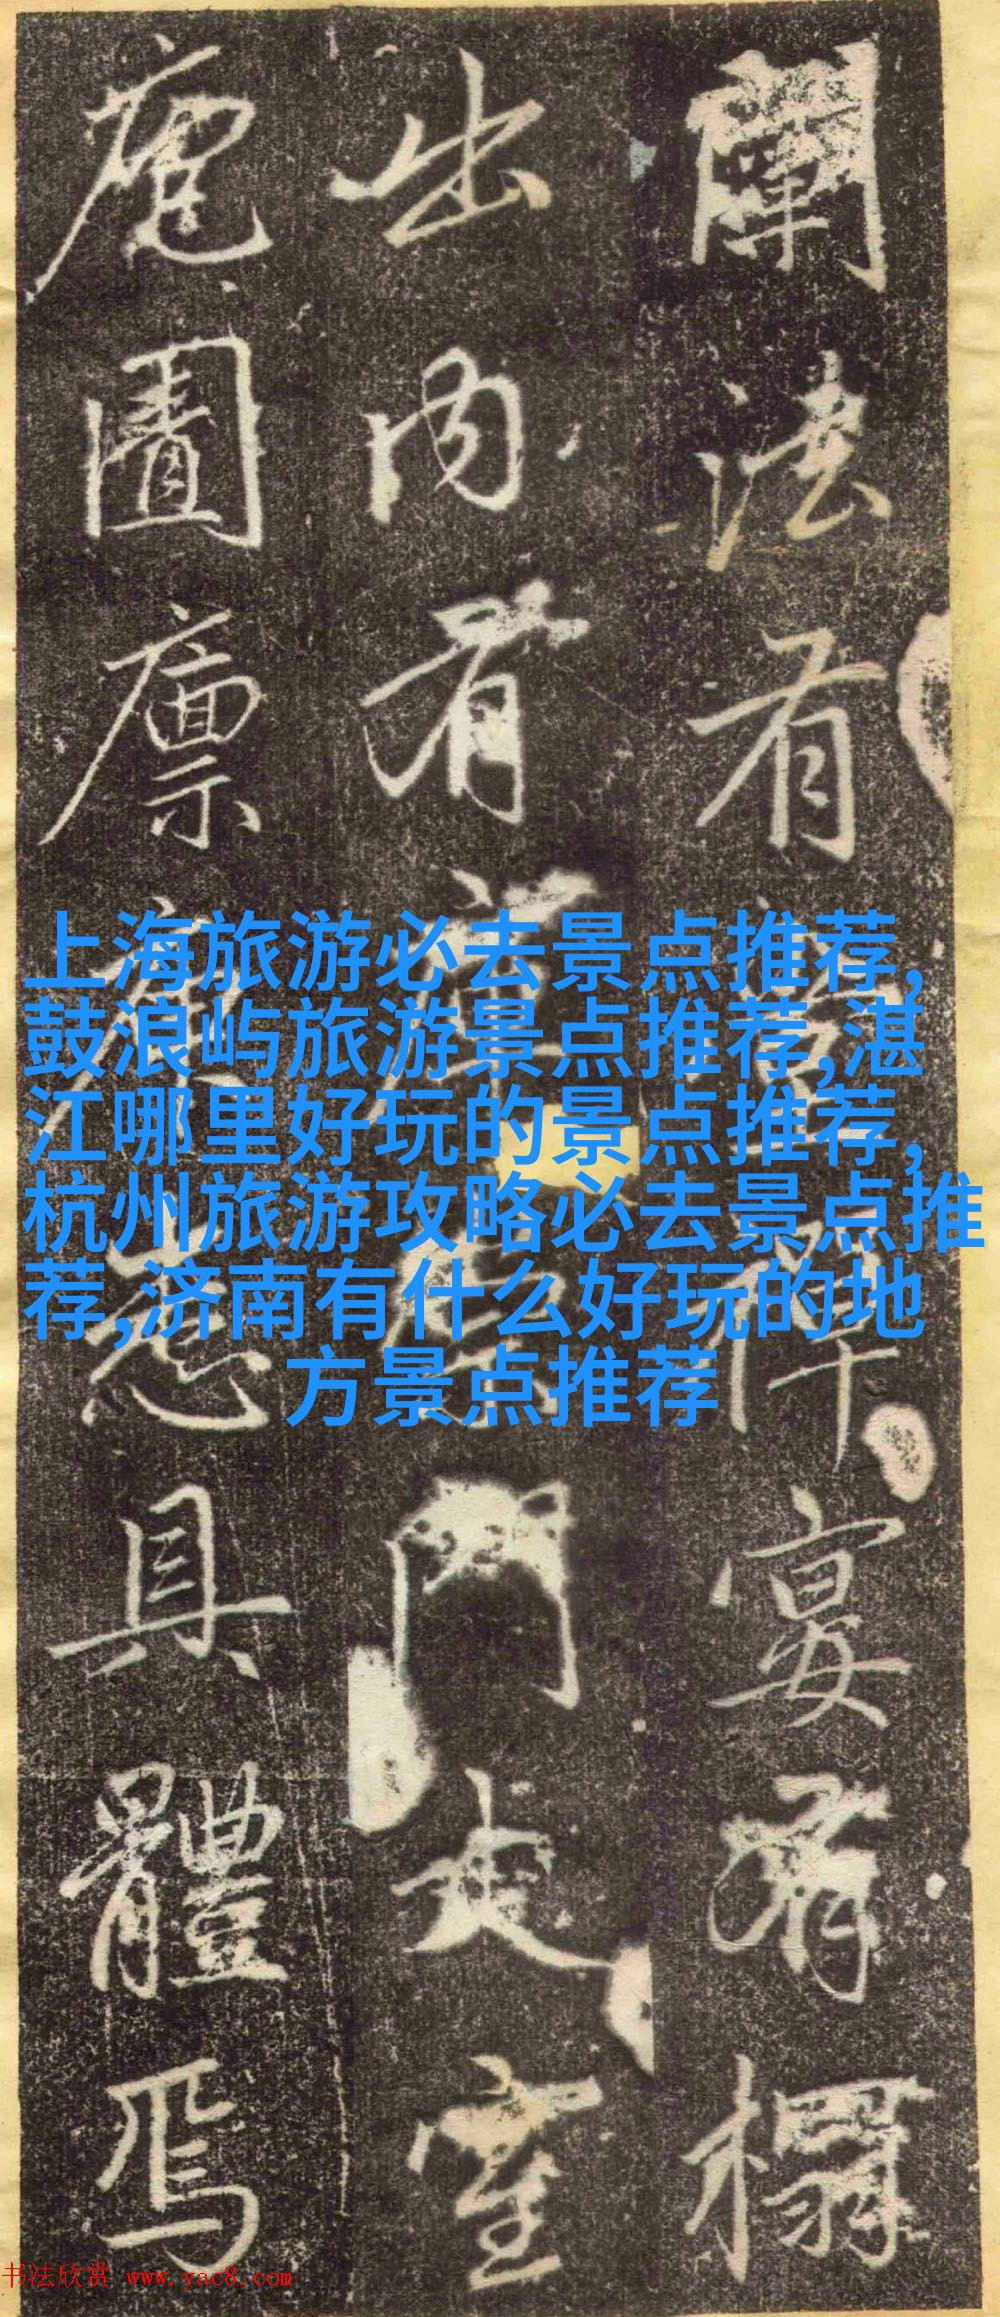 闡法有
宴有榻
出內有
門走室
庖圊廪
具體焉
上海旅游必去景点推荐,
鼓浪屿旅游景点推荐,湛
江哪里好玩的景点推荐,
杭州旅游攻略必去景点推
荐,济南有什么好玩的地
方景点推荐
书法欣赏 www.yac8.com